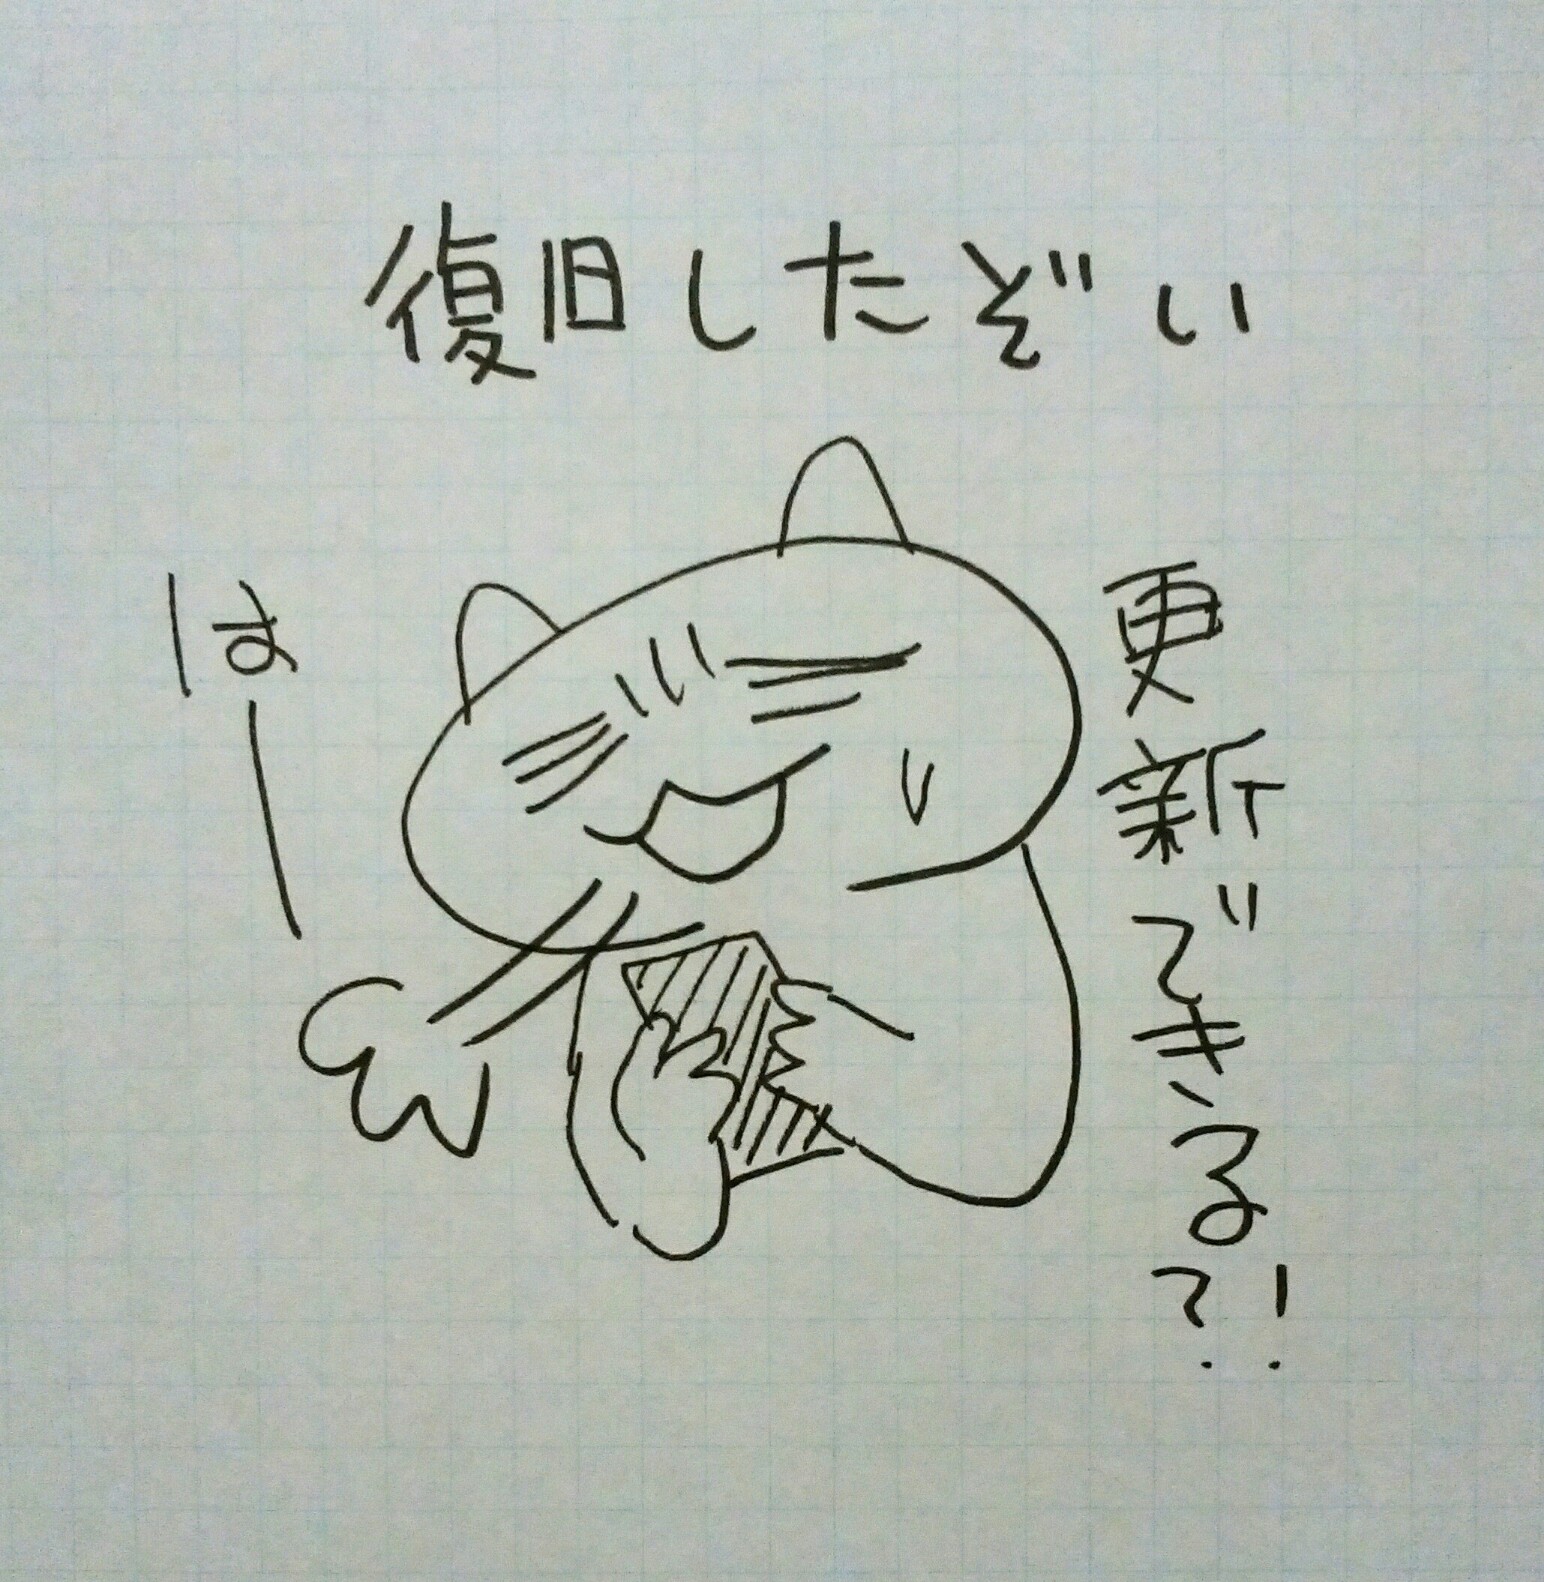 復旧したぞい
更新できる?!
はー